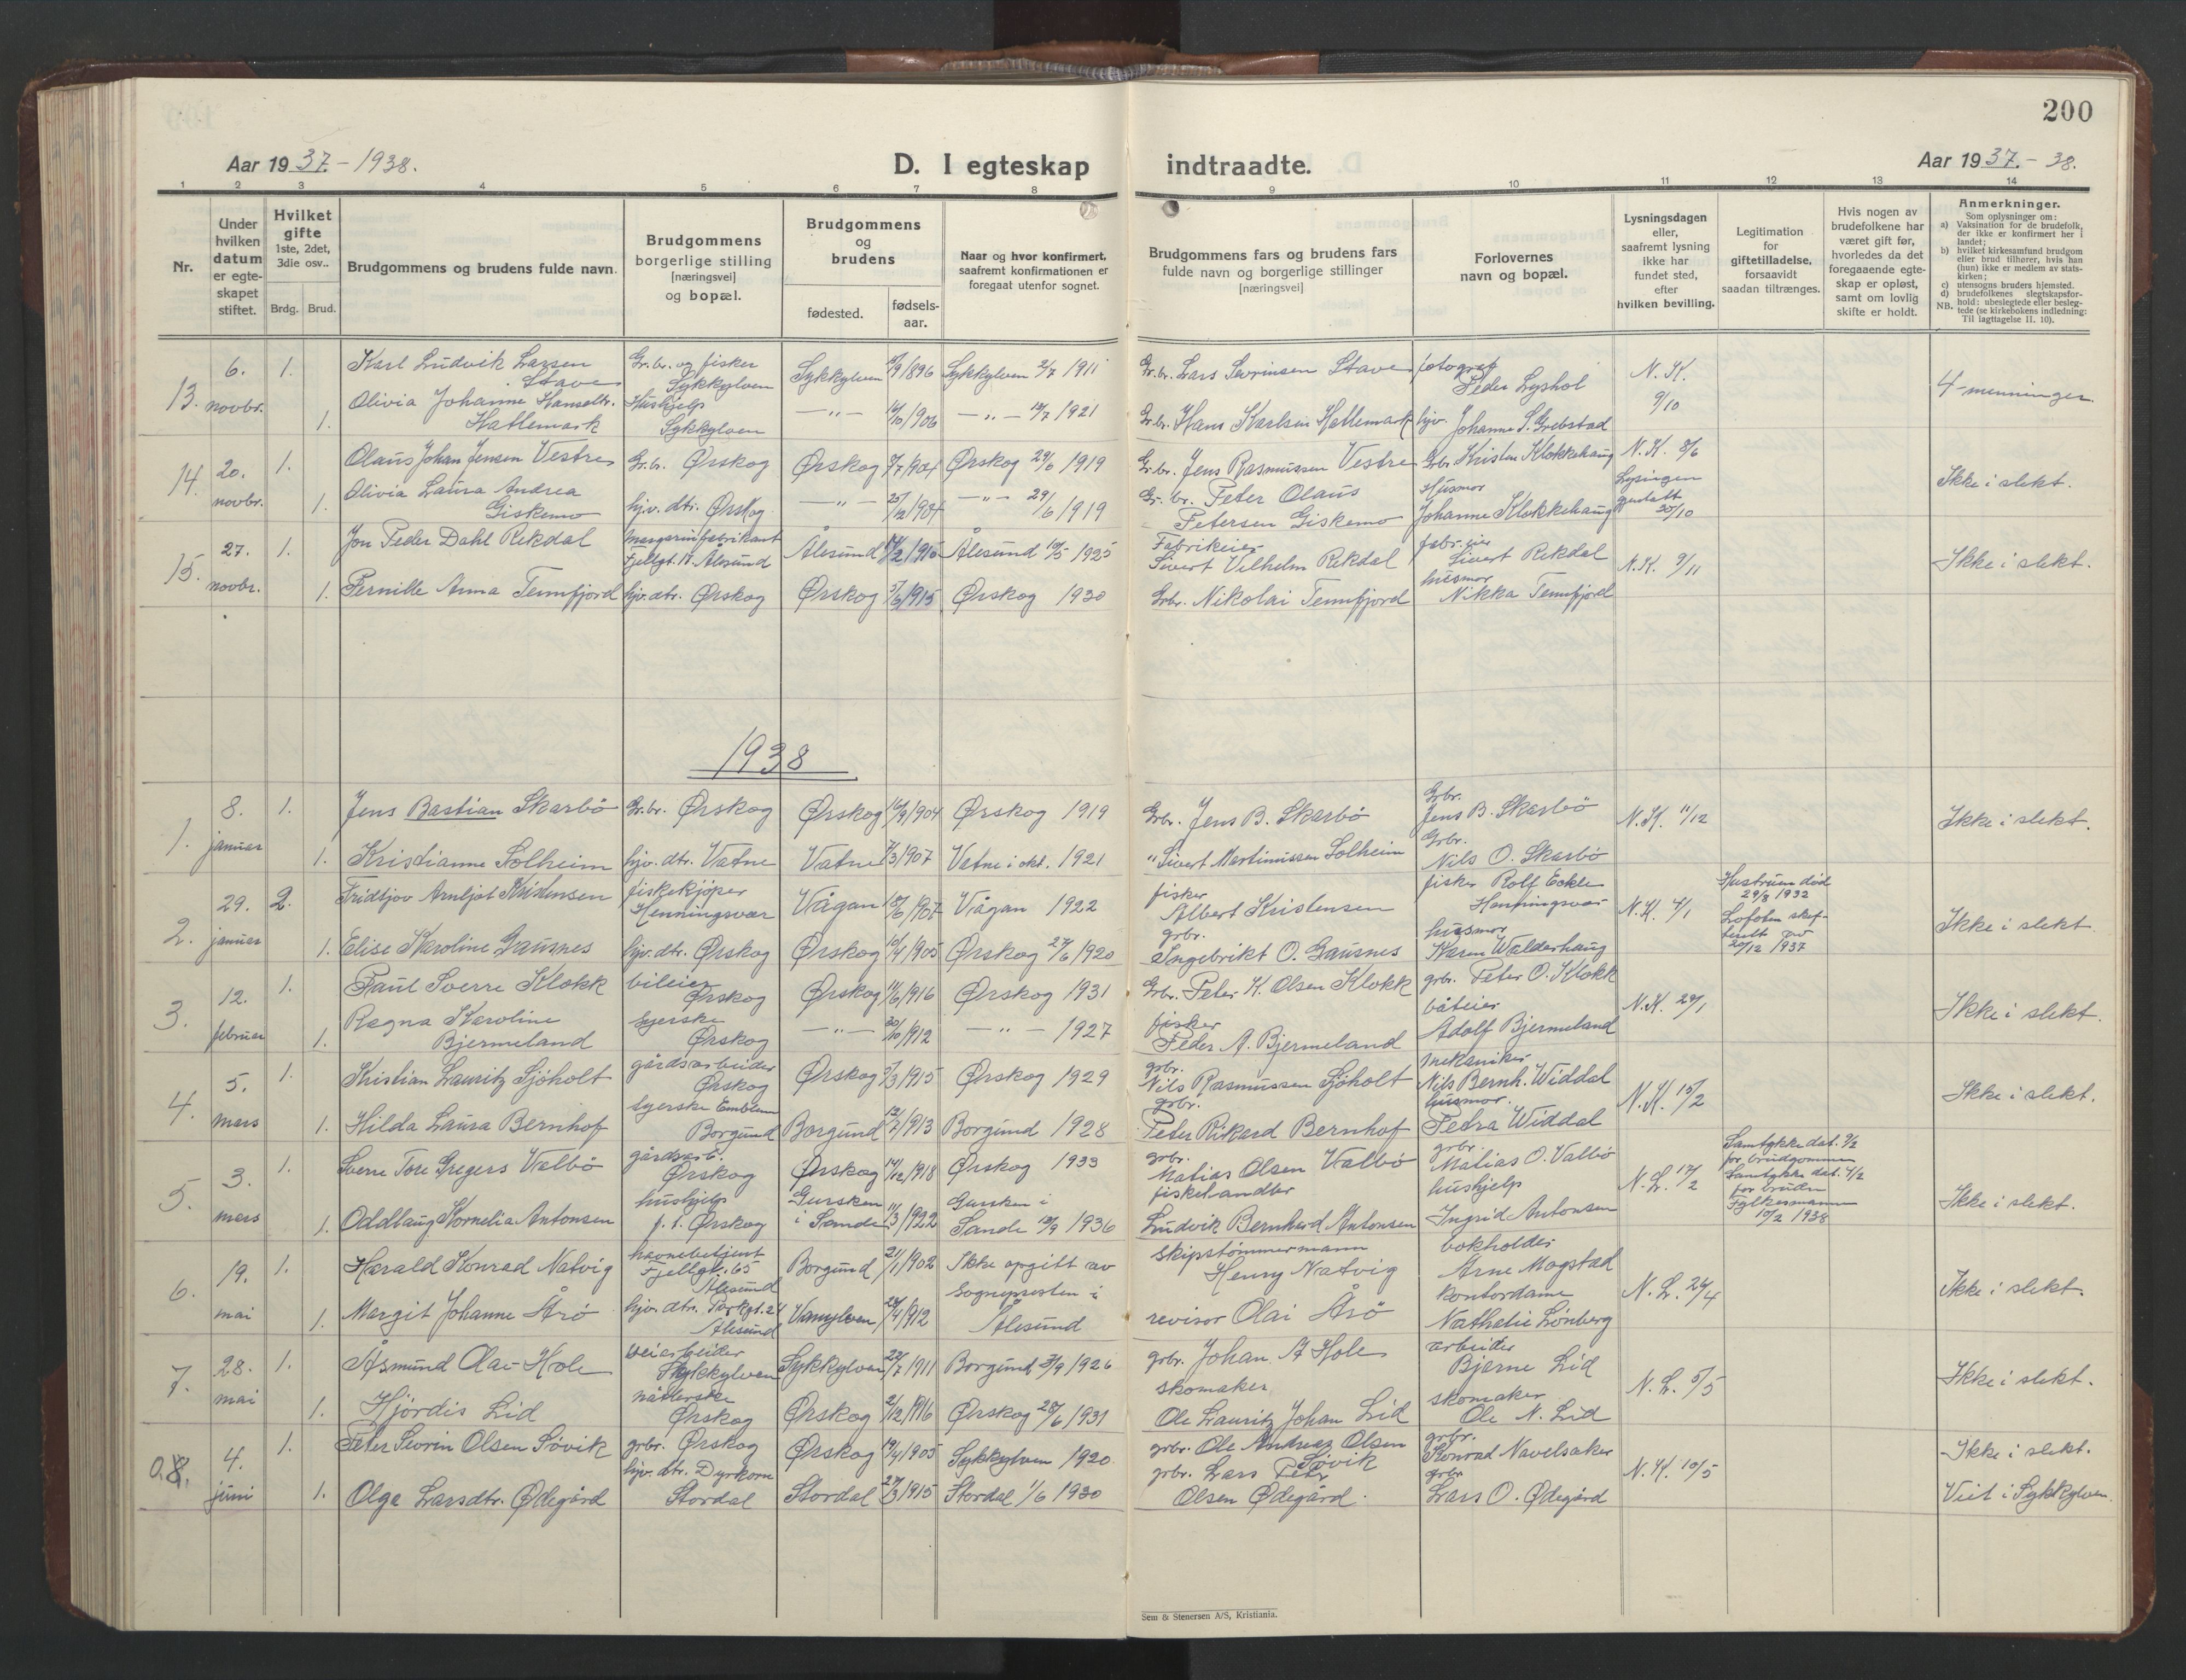 200
Aar 1937.-1938.
D. I egteskap indtraadte.
Aar 1937.-38.
1 2 3 4 5 6 7 8 9 10 11 12 13 14
Nr.
Under hvilken datum er egte-skapet stiftet.
Hvilket gifte 1ste, 2det, 3die osv..
Brdg. Brud.
Brudgommens og brudens fulde navn.
Brudgommens borgerlige stilling [næringsvei] og bopæl.
Brudgommens og brudens
fødested.
fødsels-aar.
Naar og hvor konfirmert, saafremt konfirmationen er foregaat utenfor sognet.
Brudgommens fars og brudens fars fulde navn og borgerlige stillinger [næringsvei]
Forlovernes navn og bopæl.
Lysningsdagen eller, saafremt lysning ikke har fundet sted, efter hvilken bevilling.
Legitimation for giftetilladelse, forsaavidt saadan tiltrænges.
Hvis nogen av brudefolkene har været gift før, hvorledes da det foregaaende egte-skap er opløst, samt om lovlig skifte er holdt.
Anmerkninger.
Som oplysninger om:
a) Vaksination for de brudefolk, der ikke er konfirmert her i landet;
b) hvilket kirkesamfund brudgom eller brud tilhører, hvis han (hun) ikke er medlem av stats-kirken;
c) utensogns bruders hjemsted.
d) brudefolkenes slegtskapsfor-hold: ubeslegtede eller besleg-tede (se kirkebokens indledning:
NB. Til iagttagelse II. 10).
13. 6. novbr. 1. Karl Ludvik Larsen Stave Gr.br. og fisker Sykkylven Sykkylven /9 1896 Sykkylven 2/7 1911 Gr.br. Lars Sevrinsen Stave fotograf Peder Lyshol N.K. 9/10 4-menninger
1. Olivia Johanne Hansdtr. Hatlemark Hushjelp Sykkylven -"- /10 1906 -"- /7 1921 Gr.br. Hans Karlsen Hatlemark hjv. Johanne S. Grebstad
14. 20. novbr. 1. Olaus Johan Jensen Vestre Gr.br. Ørskog Ørskog /7 1904 Ørskog 29/6 1919 Gr.br. Jens Rasmussen Vestre Grbr Kristen Klokkehaug N.K. 8/6 Ikke i slekt.
1. Olivia Laura Andrea Giskemo hjv. dtr. Ørskog -"- 25/12 1904 -"- 29/6 1919 Gr.br. Peter Olaus Petersen Giskemo Husmor Johanne Klokkehaug Lysingen gjentatt 20/10
15. 27. novbr. 1. Jon Peder Dahl Rekdal margarinfabrikant Fjellgt. 17. Ålesund Ålesund /2 1910 Ålesund 10/5 1925 Fabrikeier Sivert Vilhelm Rekdal fabr.eier Sivert Rekdal N.K. 9/11 Ikke i slekt.
1. Pernille Anna Tennfjord hjv. dtr. Ørskog Ørskog /6 1915 Ørskog 1930 Grbr. Nikolai Tennfjord husmor Nikka Tennfjord
1938
1. 8. januar 1. Jens Bastian Skarbö Gr.br. Ørskog Ørskog 16/9 1904 Ørskog 1919 Grbr. Jens B. Skarbö Grbr. Jens B. Skarbö N.K. 11/12 Ikke i slekt.
1. Kristianne Solheim hjv. dtr. Vatne Vatne /3 1907 Vatne i okt. 1921 " Sivert Martinussen Solheim Grbr. Nils O. Skarbö
2. 29. januar 2. Fridtjov Arnljot Kristensen fiskekjöper Henningsvær Vågan /6 1907 Vågan 1922 fisker Albert Kristensen fisker Rolf Henningsvær N.K. 4/1 Hustruen död 29/8 1932 Ikke i slekt
1. Elise Karoline Gausnes hjv. dtr. Ørskog Ørskog 10/4 1905 Ørskog 27/6 1920 grbr. Ingebrikt O. Gausnes husmor Karen Walderhaug Lofoten skif-terett av 20/12 1937
3. 12. februar 1. Paul Sverre Klokk bileier Ørskog Ørskog 11/6 1916 Ørskog 1931 Grbr. Peter K. Olsen Klokk grbr. Peter O. Klokk N.K. 29/1 Ikke i slekt.
1. Ragna Karoline Bjermeland syerske Ørskog -"- 30/10 1912 -"- 1927 fisker Peder A. Bjermeland båteier Adolf Bjermeland
4. 5. mars 1. Kristian Lauritz Sjöholt gårdsarbeider Ørskog Ørskog /3 1915 Ørskog 1929 grbr. Nils Rasmussen Sjöholt mekaniker Nils Bernh. Widdal N.K. 15/2 Ikke i slekt.
1. Hilda Laura Bernhof syerske Emblem Borgund Borgund 12/7 1913 Borgund 1928 grbr. Peter Rikard Bernhof husmor. Petra Widdal
5. 3. mars 1. Sverre Tore Gregers Valbö gårdsarb. Ørskog Ørskog 14/12 1918 Ørskog 1933 grbr. Matias Olsen Valbö grbr. Matias O. Valbö N.L. 17/2 Samtykke dat. 9/2 for brudgommen Ikke i slekt.
1. Oddlaug Kornelia Antonsen hushjelp f.t. Ørskog Gursken i Sande 11/3 1922 Gursken i Sande 13/9 1936 fiskehandler Ludvik Bernhard Antonsen hushjelp Ingrid Antonsen Samtykke dat. 4/2 for bruden Fylkesmannen 10/2 1938
6. 19. mai 1. Harald Konrad Natvig havnebetjent Fjellgt. 65 Ålesund Borgund 21/1 1902 Ikke opgitt av Sognepresten i Ålesund skipstömmermann Henry Natvig bokholder Arne Mogstad N.L. 24/4 Ikke i slekt.
1. Margit Johanne Årö hjv. dtr. Parkgt. 24 Ålesund Vanylven 28/4 1912 revisor Olai Årö kontordame Nathalie Lönberg
7. 28. mai 1. Åsmund Olav Hole veiarbeider Sykkylven Sykkylven 22/7 1911 Borgund 3/9 1926 grbr. Johan A Hole arbeider Bjarne Lid N.L. 5/5 Ikke i slekt.
1. Hjördis Lid Ørskog Ørskog 2/12 1916 Ørskog 28/6 1931 skomaker Ole Lauritz Johan Lid skomaker Ole N. Lid
0. 8. 4. juni 1. Peter Sevrin Olsen Sövik grbr. Ørskog Ørskog 19/4 1905 Sykkylven 1920 grbr. Ole Andreas Olsen Sövik grbr. Konrad Navelsaker N.K. 10/5 Ikke i slekt.
1. Olga Larsdtr. Ødegård hjv. dtr. Dyrkorn Stordal Stordal 27/3 1915 Stordal 1/6 1930 grbr. Lars Peter Olsen Ødegård. grbr Lars O. Ødegård Viet i Sykkylven.
Sem & Stenersen A/S, Kristiania.